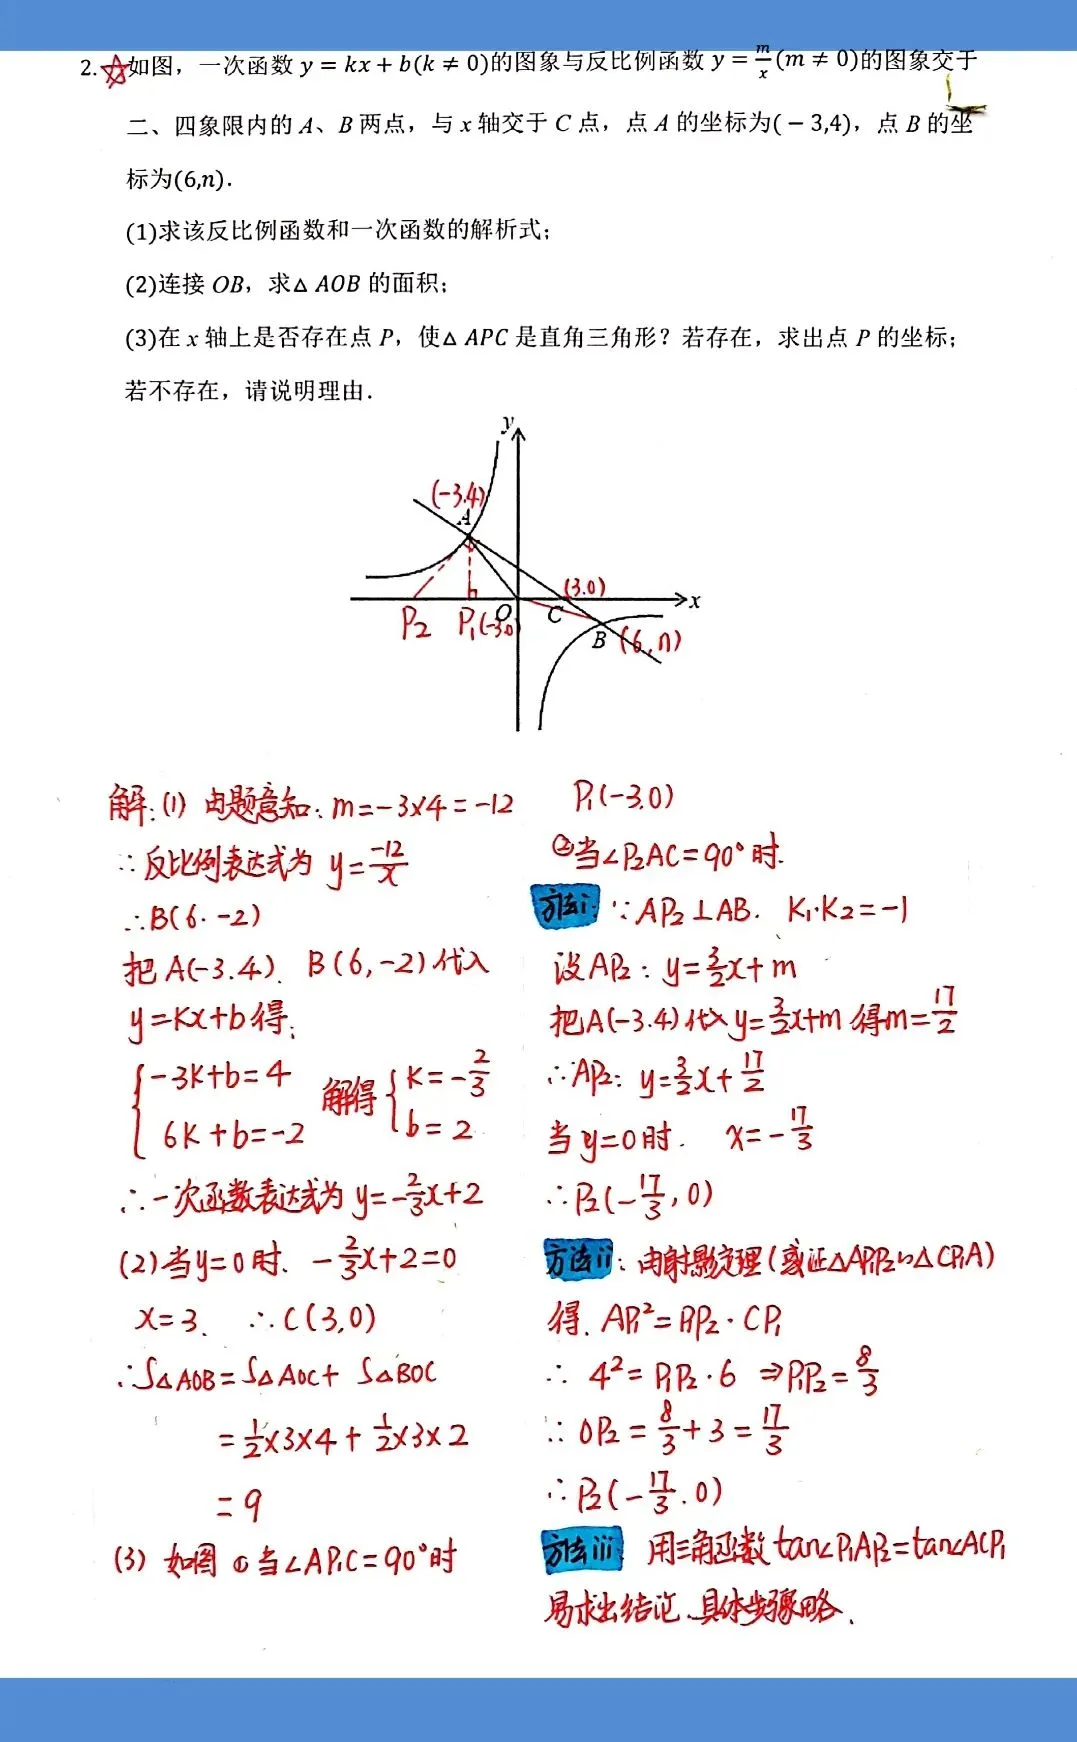 2.☆如图，一次函数 y = kx + b(k ≠ 0)的图象与反比例函数 y = m/x (m ≠ 0)的图象交于
二、四象限内的 A、B 两点，与 x 轴交于 C 点，点 A 的坐标为( − 3,4)，点 B 的坐
标为(6,n).
(1)求该反比例函数和一次函数的解析式;
(2)连接 OB，求△ AOB 的面积;
(3)在 x 轴上是否存在点 P，使△ APC 是直角三角形？若存在，求出点 P 的坐标;
若不存在，请说明理由.
y
(-3.4)
A
(3.0)
x
P₂ P₁(-3.0) O C
B (6,n)
解:(1) 由题意知: m=-3×4=-12
∴反比例表达式为 y=-12/x
∴B(6.-2)
把A(-3.4). B(6,-2)代入
y=kx+b得:
{-3k+b=4 解得 {k=-2/3
6k+b=-2 b=2
∴一次函数表达式为y=-2/3x+2
(2)当y=0时. -2/3x+2=0
x=3. ∴C(3,0)
∴S△AOB=S△AOC+S△BOC
=1/2×3×4+1/2×3×2
=9
(3) 如图 ①当∠AP₁C=90°时
P₁(-3,0)
②当∠P₂AC=90°时.
方法i: ∵AP₂⊥AB. K₁·K₂=-1
设AP₂: y=3/2x+m
把A(-3.4)代入y=3/2x+m得m=17/2
∴AP₂: y=3/2x+17/2
当y=0时. x=-17/3
∴P₂(-17/3,0)
方法ii: 由射影定理(或证△AP₁P₂∽△CP₁A)
得. AP₁²=P₁P₂·CP₁
∴ 4²=P₁P₂·6 ⇒P₁P₂=8/3
∴OP₂=8/3+3=17/3
∴P₂(-17/3.0)
方法iii: 用三角函数tan∠P₁AP₂=tan∠ACP₁
易求出结论.具体步骤略.